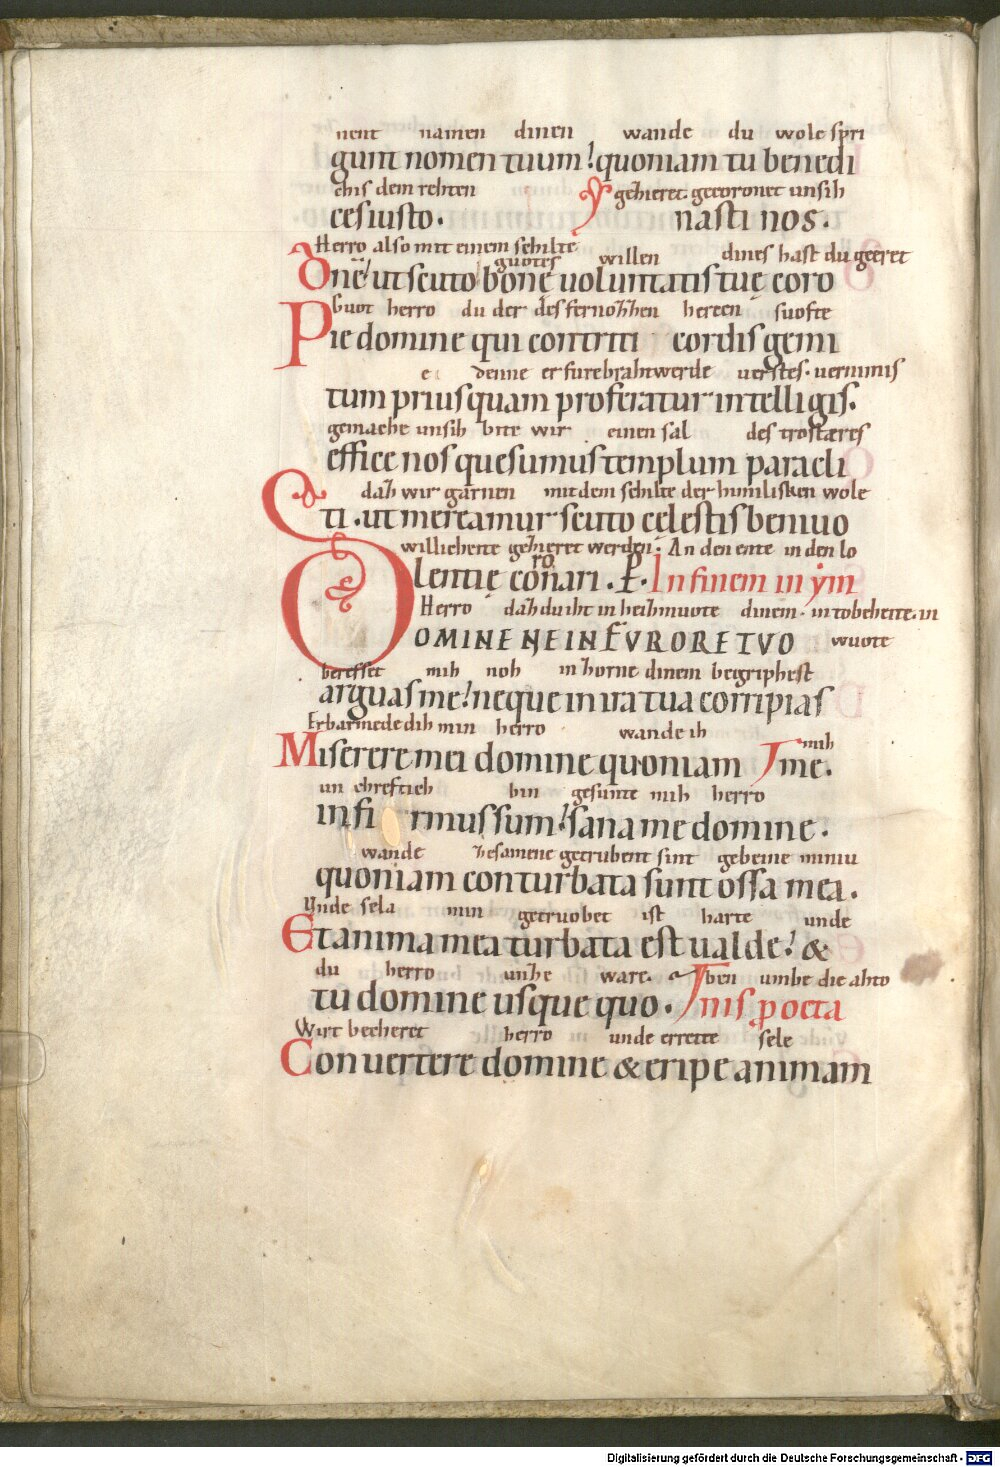 nent namen dinen wande du wole spri
gunt nomen tuum! quoniam tu benedi
chis dem rehten gezieret. gecoronet unsih
ces iusto. nasti nos.
Herro also mit einem schilte guotes willen dines hast du geeret
One! ut scuto bone uoluntatis tue coro
Guot herro du der des fernozzen herzen suofte
Pie domine qui contriti cordis gemi
e denne er furebrahtwerde uerstes. uernimis
tum priusquam proferatur intelligis.
gemache unsih bite wir einen sal des trostæres
effice nos quesumus templum paracli
daz wir garnen mit dem schilte der himilisken wole
ti. ut mereamur scuto celestis beniuo
willicheite gezieret werden. An den ente in den lo
lentie coronari. P. In finem in ym
Herro daz du iht in heizmuote dinem. in tobeheite. in
DOMINE NE IN FURORE TUO wuote
berefset mih noh in zorne dinem begriphest
arguas me! neque in ira tua corripias
Erbarmede dih min herro wande ih mih
Miserere mei domine quoniam me.
un chreftich bin gesunte mih herro
infirmus sum! sana me domine.
wande zesamene getrubent sint gebeine miniu
quoniam conturbata sunt ossa mea.
Unde sela min getruobet ist harte unde
Et anima mea turbata est ualde! &
du herro unze ware. ben umbe die ahto
tu domine usque quo. nis poeta
Wirt becheret herro unde errette sele
Conuertere domine & eripe animam
Digitalisierung gefördert durch die Deutsche Forschungsgemeinschaft - DFG